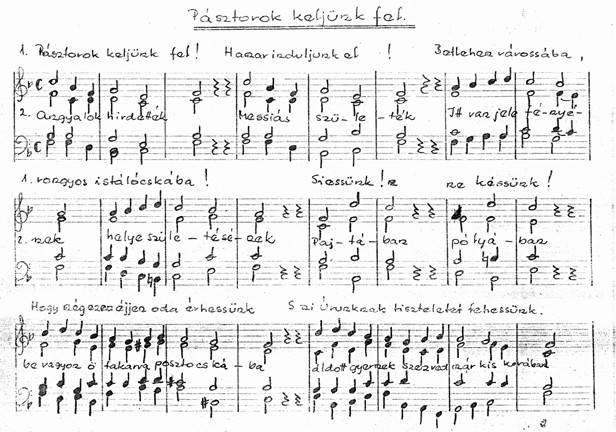 Pásztorok keljünk fel.
1. Pásztorok keljünk fel! Hamar induljunk el! Betlehem városába,
2. Angyalok hirdették Messiás szü-le-ték Itt van jele fé-nyé-
1. rongyos istálócskába! Siessünk! ne késsünk!
2. nek helye szüle-tésé-nek Paj-tá-ban pólyá-ban
Hogy még ezen éjjen oda érhessünk Szűz Urunknak tiszteletet tehessünk.
be vagyon ő takarva posztócská-ba áldott gyermek szenved már kis korában